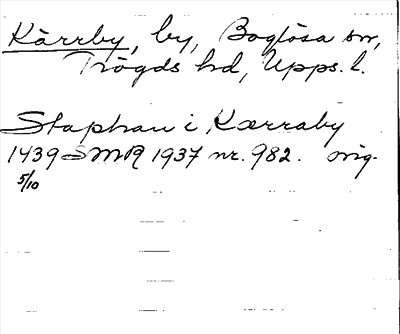 Kärrby, by, Boglösa sn,
Trögds hd, Upps. l.
Staphan i Kærraby
1439 SMR 1937 nr. 982. orig.
5/10